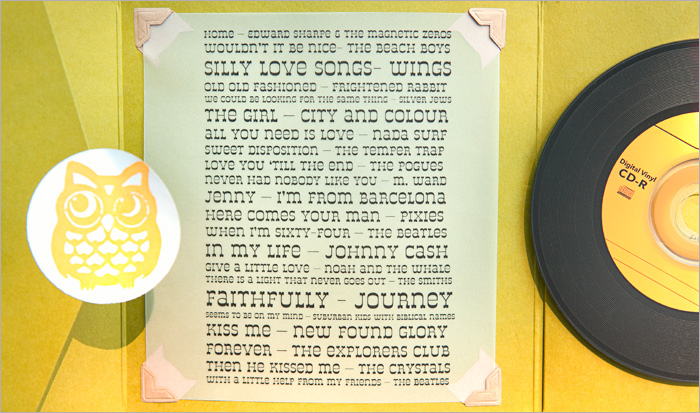 HOME – EDWARD SHARPE & THE MAGNETIC ZEROS
WOULDN'T IT BE NICE– THE BEACH BOYS
SILLY LOVE SONGS– WINGS
OLD OLD FASHIONED – FRIGHTENED RABBIT
WE COULD BE LOOKING FOR THE SAME THING – SILVER JEWS
THE GIRL – CITY AND COLOUR
ALL YOU NEED IS LOVE – NADA SURF
SWEET DISPOSITION – THE TEMPER TRAP
LOVE YOU 'TILL THE END – THE POGUES
NEVER HAD NOBODY LIKE YOU – M. WARD
JENNY – I'M FROM BARCELONA
HERE COMES YOUR MAN – PIXIES
WHEN I'M SIXTY-FOUR – THE BEATLES
IN MY LIFE – JOHNNY CASH
GIVE A LITTLE LOVE – NOAH AND THE WHALE
THERE IS A LIGHT THAT NEVER GOES OUT – THE SMITHS
FAITHFULLY – JOURNEY
SEEMS TO BE ON MY MIND – SUBURBAN KIDS WITH BIBLICAL NAMES
KISS ME – NEW FOUND GLORY
FOREVER – THE EXPLORERS CLUB
THEN HE KISSED ME – THE CRYSTALS
WITH A LITTLE HELP FROM MY FRIENDS – THE BEATLES
Digital Vinyl
CD-R